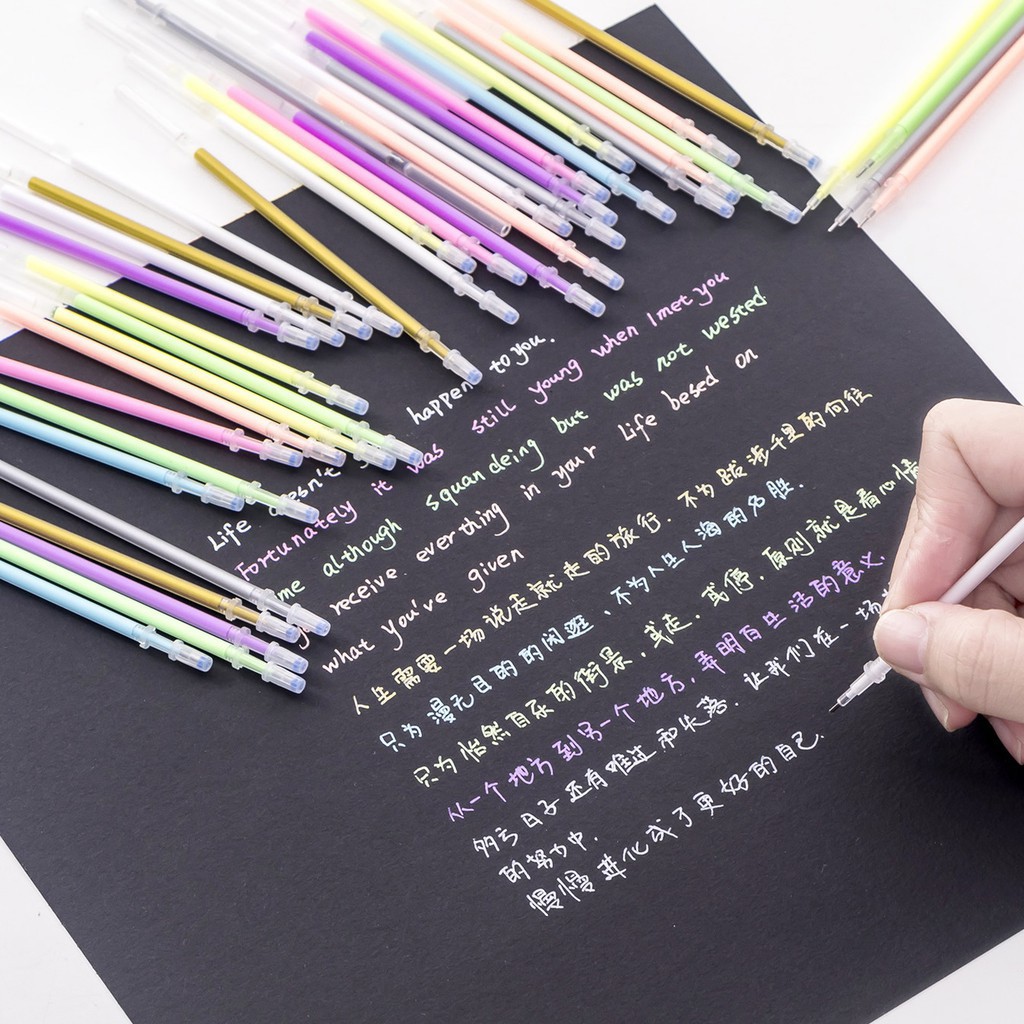 happen to you.
Life doesn't
Fortunately it was still young when I met you
me although squandeing but was not wested
receive everthing in your life besed on
what you've given
人生需要一场说走就走的旅行．不为跋涉千里的向往
只为漫无目的的闲逛、不为人生人海的名胜．
只为怡然自乐的街景，或走．或停．原则就是看心情
从一个地方到另一个地方，弄明白生活的意义．
的亏日子还有难过和失落．让我们在一场
的努力中．
慢慢进化成了更好的自己．